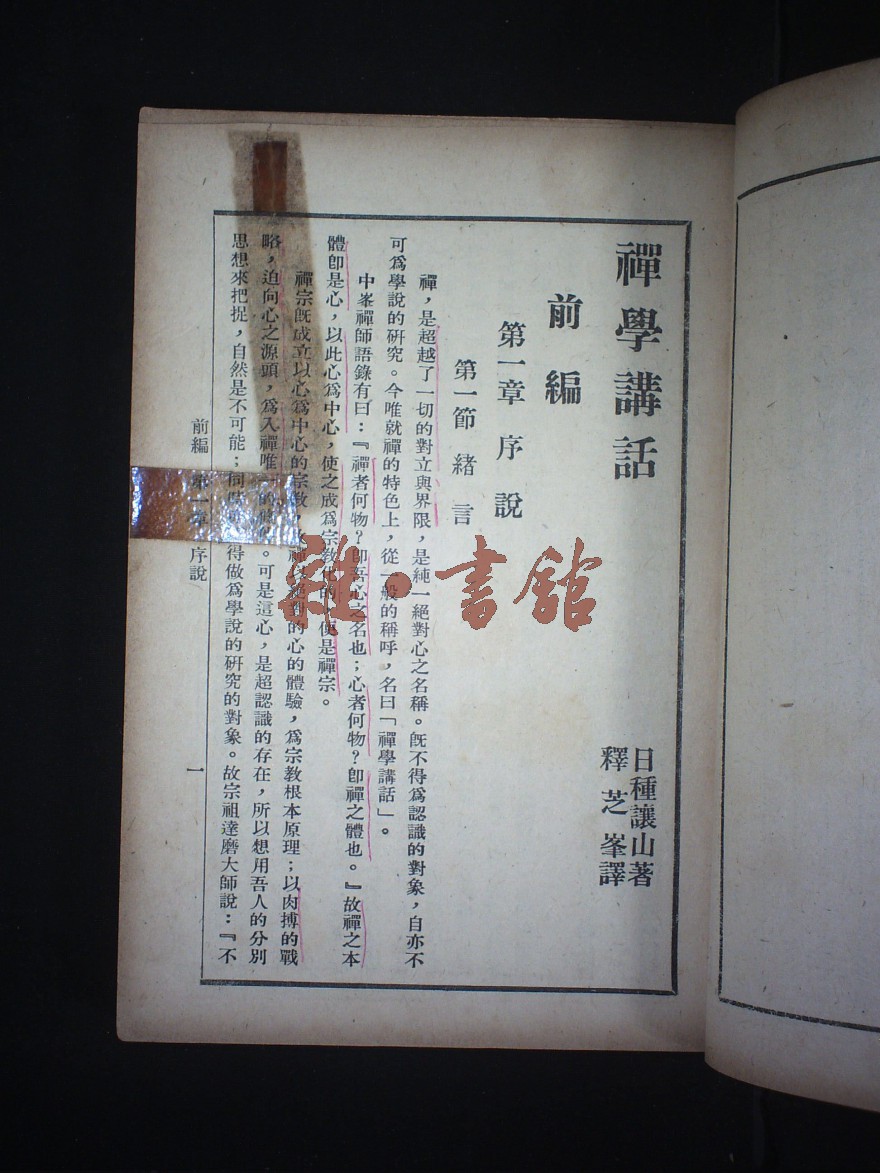 禪學講話
日種讓山著
釋芝峯譯
前編
第一章 序說
第一節 緒言
禪，是超越了一切的對立與界限，是純一絕對心之名稱。既不得爲認識的對象，自亦不
可爲學說的硏究。今唯就禪的特色上，從一般的稱呼，名曰「禪學講話」。
中峯禪師語錄有曰：『禪者何物？卽吾心之名也；心者何物？卽禪之體也。』故禪之本
體卽是心，以此心爲中心，使之成爲宗敎化的，便是禪宗。
禪宗旣成立以心爲中心的宗敎，禪以絕對的心的體驗，爲宗敎根本原理；以肉搏的戰
略，迫向心之源頭，爲入禪唯的。可是這心，是超認識的存在，所以想用吾人的分別
思想來把捉，自然是不可能；同得做爲學說的硏究的對象。故宗祖達磨大師說：『不
前編 第一章 序說
一
雜·書舘